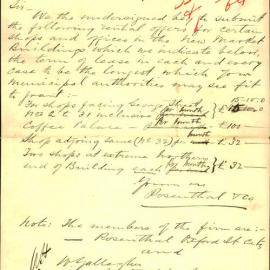 Sir –
We the undersigned beg to submit
the following rental offers for certain
shops and offices in the New Market
Buildings which we indicate below
the term of lease in each and every
case to be the longest which your
Municipal authorities may see fit
to grant :–
For shops facing George Street
No 2 to 31 inclusive per month £
Coffee Palace – per month £ 100
Shop adjoining same (No 32) per month £ 32 –
Two shops at extreme Northern
end of Building each per month £ 32 –
Yours &c
Rosenthal & Co
Note: The members of the firm are :–
– Rosenthal Oxford St City
and
W Gallagher